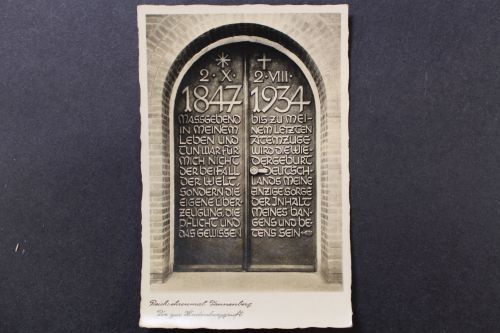 * 2·X·
1847
MASSGEBEND
IN MEINEM
LEBEN UND
TUN WAR FÜR
MICH NICHT
DER BEIFALL
DER WELT,
SONDERN DIE
EIGENE ÜBER-
ZEUGUNG, DIE
PFLICHT UND
DAS GEWISSEN
✝ 2·VIII·
1934
BIS ZU MEI-
NEM LETZTEN
ATEMZUGE
WIRD DIE WIE-
DERGEBURT
DEUTSCH-
LANDS MEINE
EINZIGE SORGE
DER INHALT
MEINES BAN-
GENS UND BE-
TENS SEIN
Reichsehrenmal Tannenberg
Tür zur Hindenburggruft